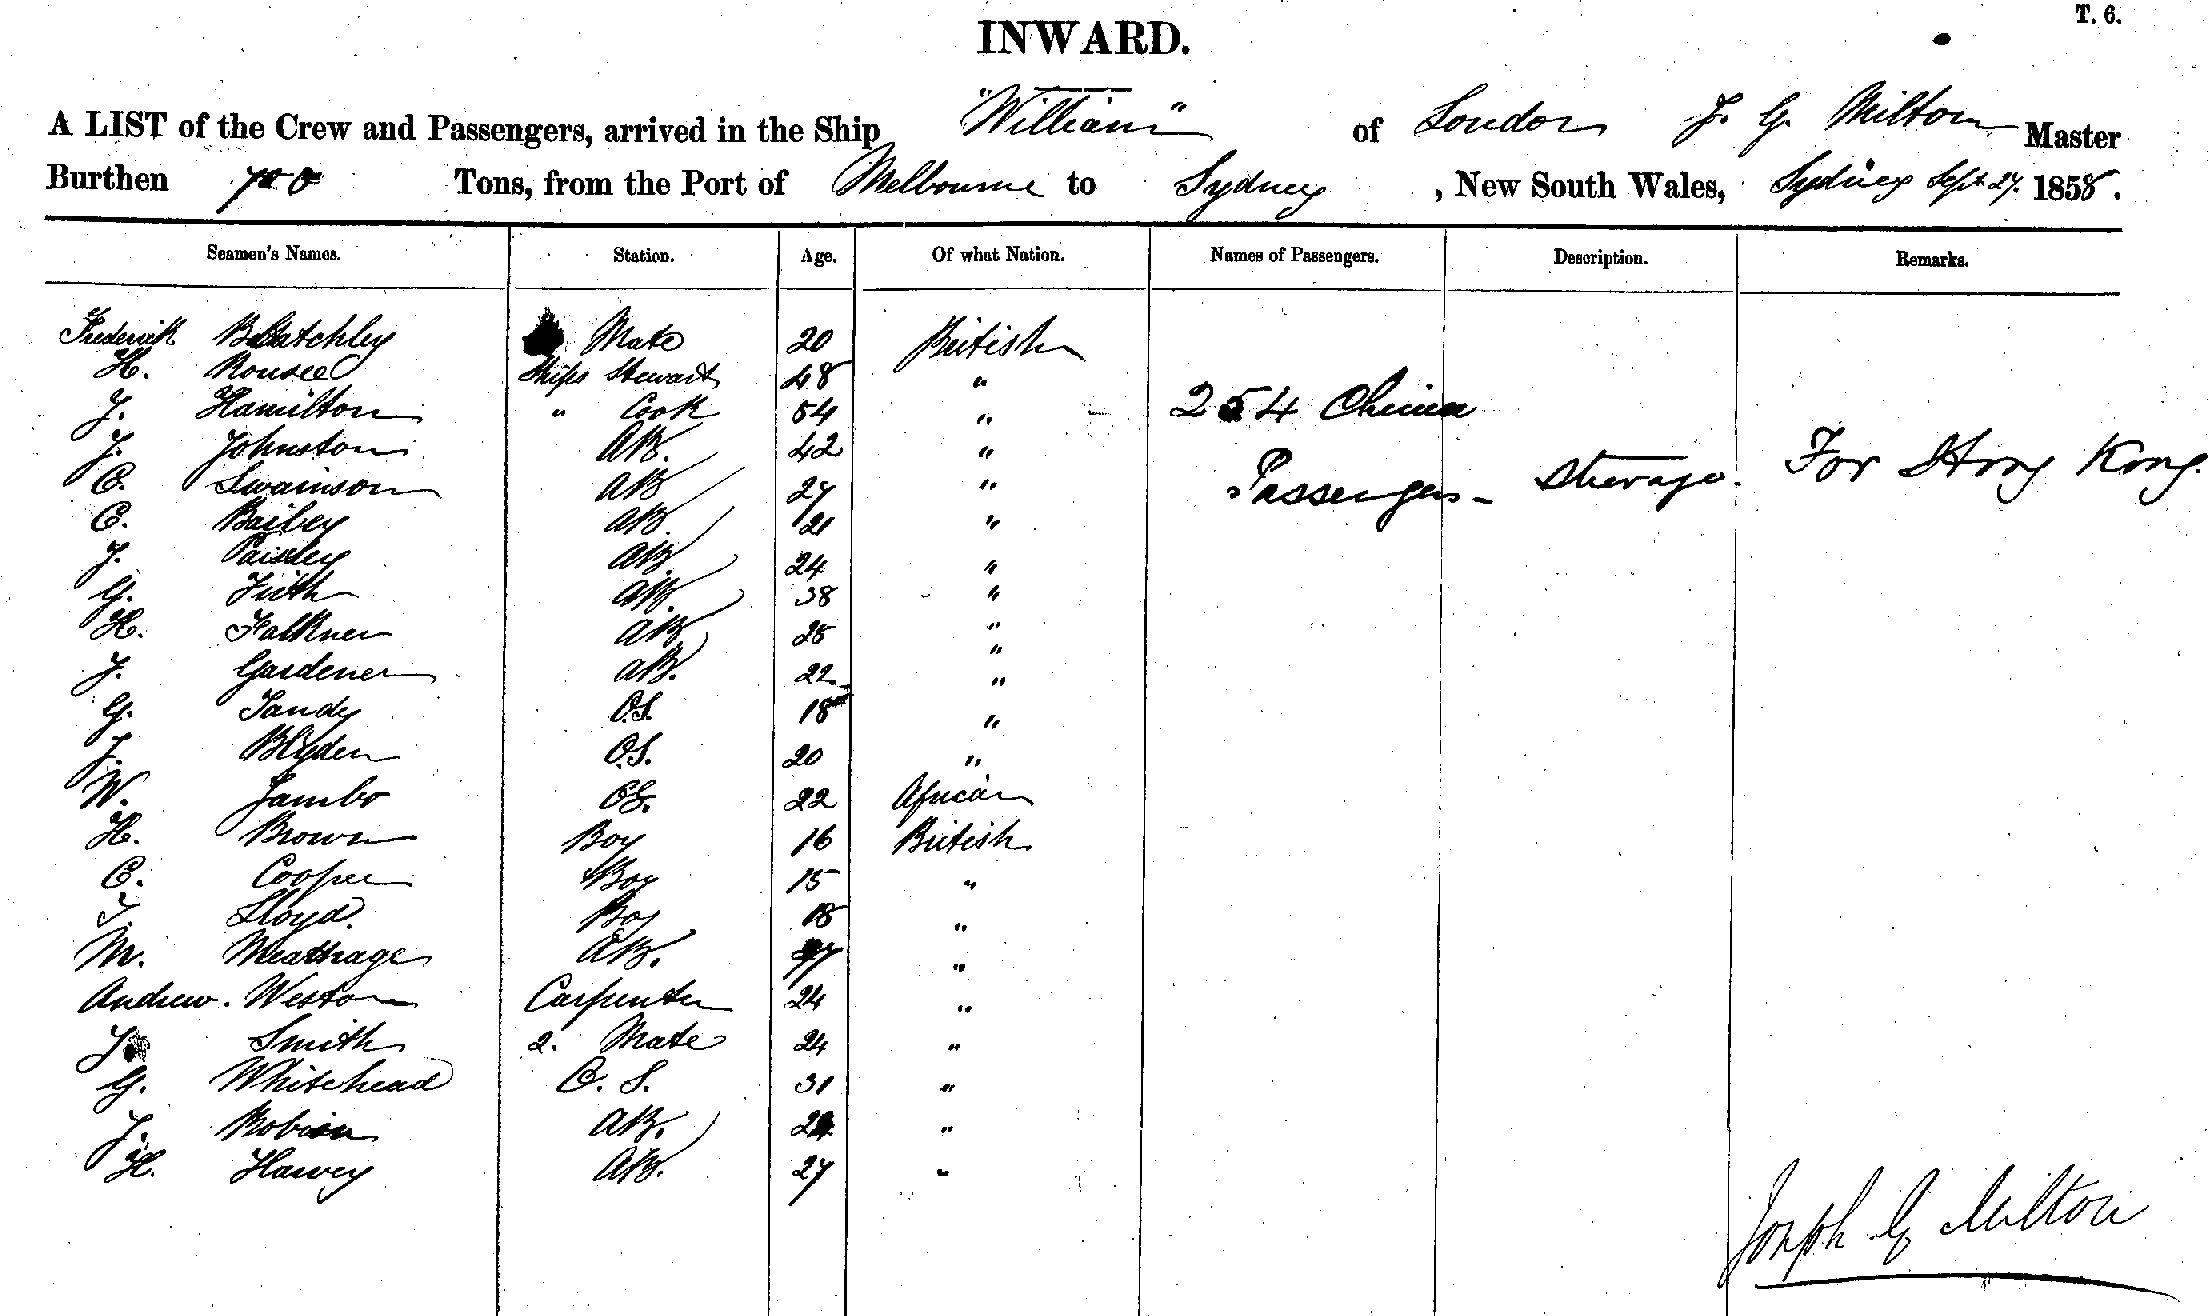 T. 6.
INWARD.
A LIST of the Crew and Passengers, arrived in the Ship "William" of London J. G. Milton Master
Burthen 700 Tons, from the Port of Melbourne to Sydney, New South Wales, Sydney Sept 27. 1858.
Seamen's Names. Station. Age. Of what Nation. Names of Passengers. Description. Remarks.
Frederick Blatchley Mate 20 British
H. Rousee Ships Stewart 48 "
J. Hamilton " Cook 54 " 254 Chinese
J. Johnston AB. 42 "
C. Swainson AB 27 " Passengers - Steerage. For Hong Kong.
C. Bailey AB 21 "
J. Paisley AB 24 "
G. Firth AB. 38 "
H. Falkner AB 28 "
J. Gardener AB. 22 "
G. Tandy O.S. 18 "
J. Blyden O.S. 20 "
W. Jambo OS. 22 African
H. Brown Boy 16 British
C. Cooper Boy 15 "
T. Lloyd. Boy 18 "
M. AB. "
Andrew. Weston Carpenter 24 "
J. Smith 2. Mate 24 "
G. Whitehead O. S. 31 "
J. AB. "
H. Harvey AB. 27 "
Joseph G Milton